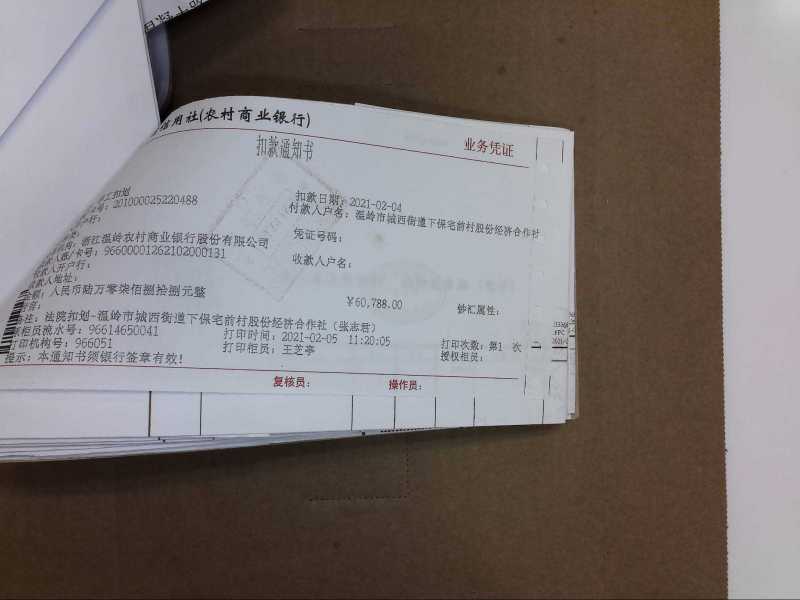 信用社(农村商业银行)
业务凭证
扣款通知书
工扣划
扣款日期：2021-02-04
号：201000025220488
付款人户名：温岭市城西街道下保宅前村股份经济合作社
行：
凭证号码：
机构：浙江温岭农村商业银行股份有限公司
人账/卡号：9660000126210200013​1
收款人户名：
款人开户行：
款人地址：
金额：人民币陆万零柒佰捌拾捌元整
¥60,788.00
钞汇属性：
注：法院扣划-温岭市城西街道下保宅前村股份经济合作社（张志君）
柜员流水号：96614650041
打印时间：2021-02-05 11:20:05
打印次数：第1 次
打印机构号：966051
打印柜员：王芝亭
授权柜员：
提示：本通知书须银行签章有效！
复核员：
操作员：